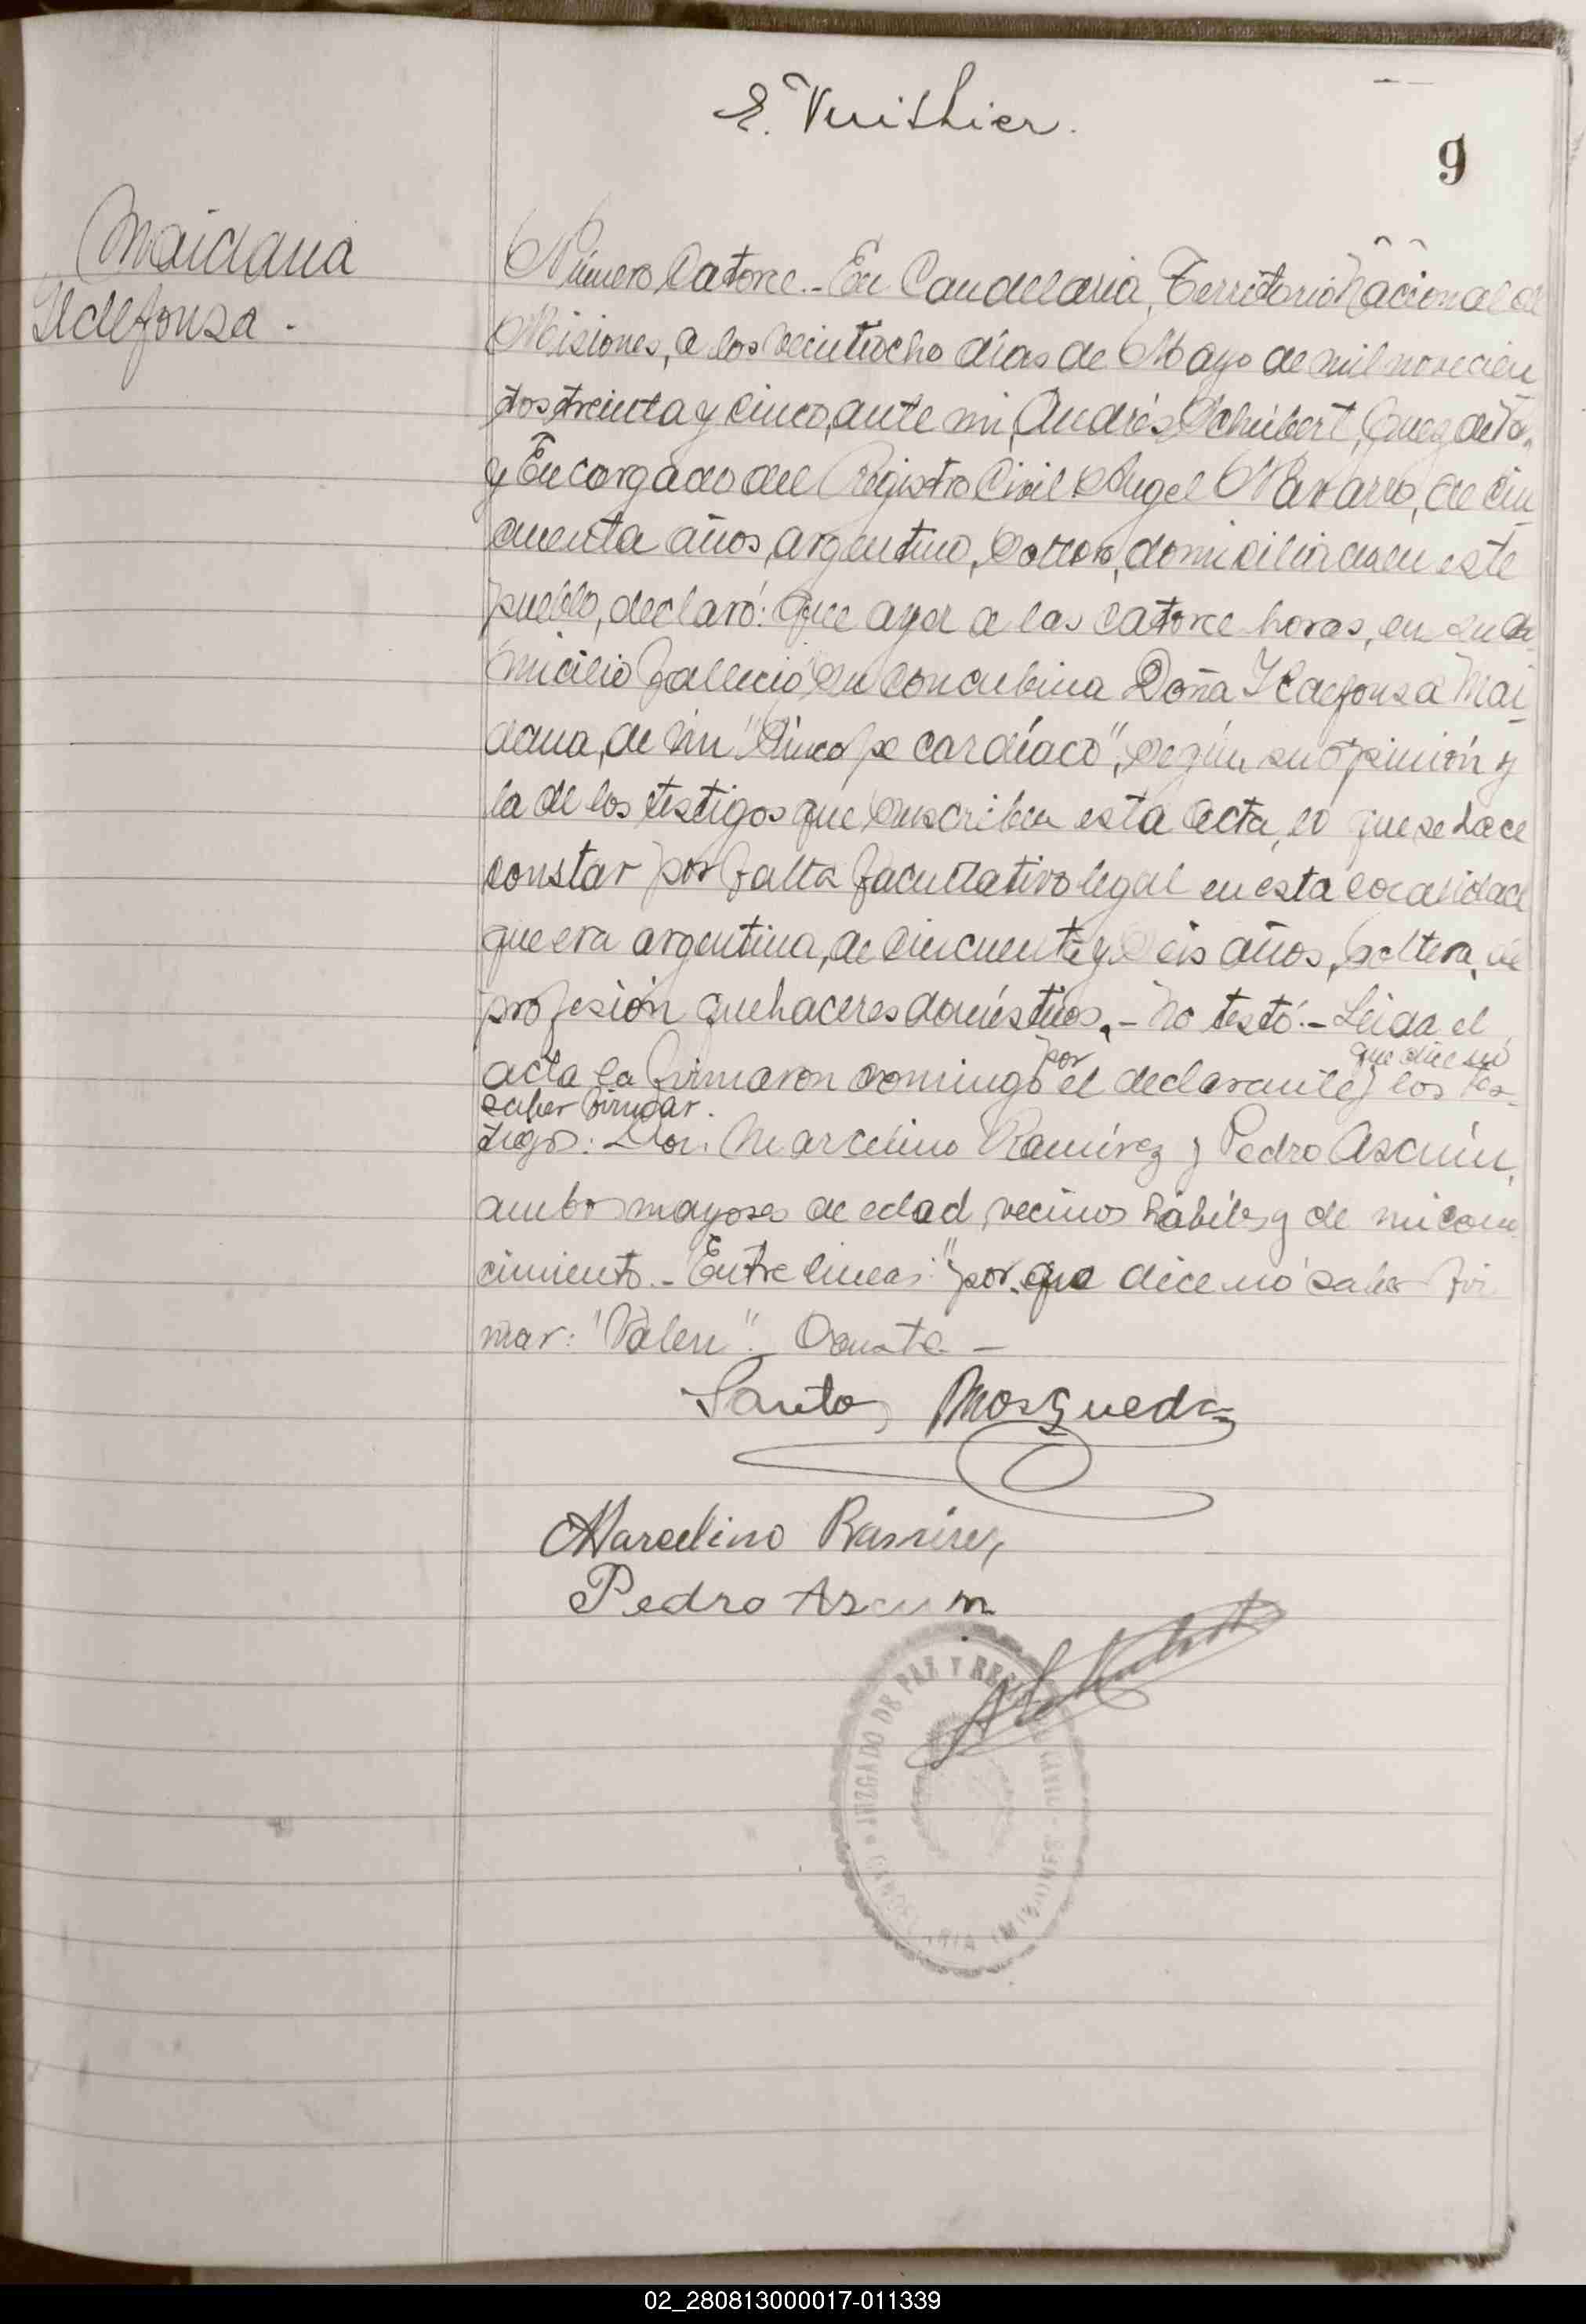 E. Vuithier.
9
Maidana
Ildefonsa.
Número Catorce.- En Candelaria, Territorio Nacional de
Misiones, a los veintiocho días de Mayo de mil novecien
tos treinta y cinco, ante mi, Andrés Schubert, Juez de Paz
y Encargado del Registro Civil Angel Navarro, de cin
cuenta años, argentino, soltero, domiciliado en este
pueblo, declaró: Que ayer a las catorce horas, en su do
micilio falleció su concubina Doña Ildefonsa Mai
dana, de un "Síncope cardíaco", según su opinión y
la de los testigos que suscriben esta acta, lo que se hace
constar por falta facultativo legal en esta localidad
que era argentina, de cincuenta y seis años, soltera, de
profesión quehaceres domésticos.- No testó.- Leida el
acta la firmaron conmigo por el declarante que dice no
saber firmar. y los tes-
tigos: Don Marcelino Ramírez y Pedro Ascuin,
ambos mayores de edad, vecinos hábiles y de mi cono
cimiento.- Entre lineas: "por, que dice no saber fir
mar: "Valen".- Consta-
Santos Mosqueda
Marcelino Ramirez
Pedro Ascuin
JUZGADO DE PAZ Y REG